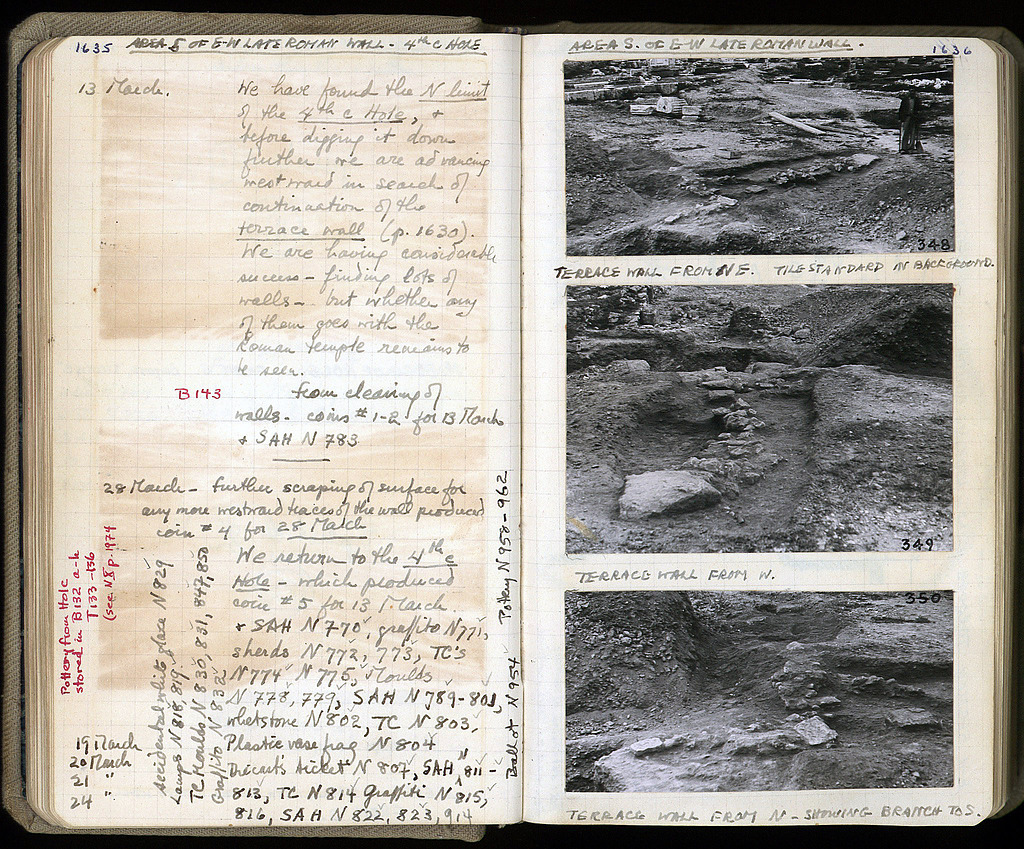 1635 AREA S OF E-W LATE ROMAN WALL - 4th C HOLE
13 March. We have found the N limit
of the 4th c Hole, &
before digging it down
further we are advancing
westward in search of
continuation of the
terrace wall (p. 1630).
We are having considerable
success - finding lots of
walls - but whether any
of them goes with the
Roman temple remains to
be seen.
B 143 from cleaning of
walls - coins # 1-2 for 13 March
& SAH N 783
28 March - further scraping of surface for
any more westward traces of the wall produced
coin # 4 for 28 March
We return to the 4th c
Hole - which produced
coin # 5 for 13 March.
& SAH N 770, graffito N 771,
sherds N 772, 773, TC's
N 774 N 775, Moulds
N 778, 779, SAH N 789-801,
whetstone N 802, TC N 803,
19 March Plastic vase frag N 804
20 March Dicast's ticket N 807, SAH " 811-
21 " 813, TC N 814 Graffiti N 815,
24 " 816, SAH N 822, 823, 914
Pottery from Hole
stored in B 132 a-h
T 133-136
(see N X p. 1974
Accidental white glaze N 829
Lamps N 818, 819
TC Moulds, N 830, 831, 847, 850
Graffito N 832
Ball of N 954 Pottery N 958-962
AREA S. OF E-W LATE ROMAN WALL. 1636
348
TERRACE WALL FROM NE. TILE STANDARD IN BACKGROUND.
349
TERRACE WALL FROM W.
350
TERRACE WALL FROM N - SHOWING BRANCH TO S.